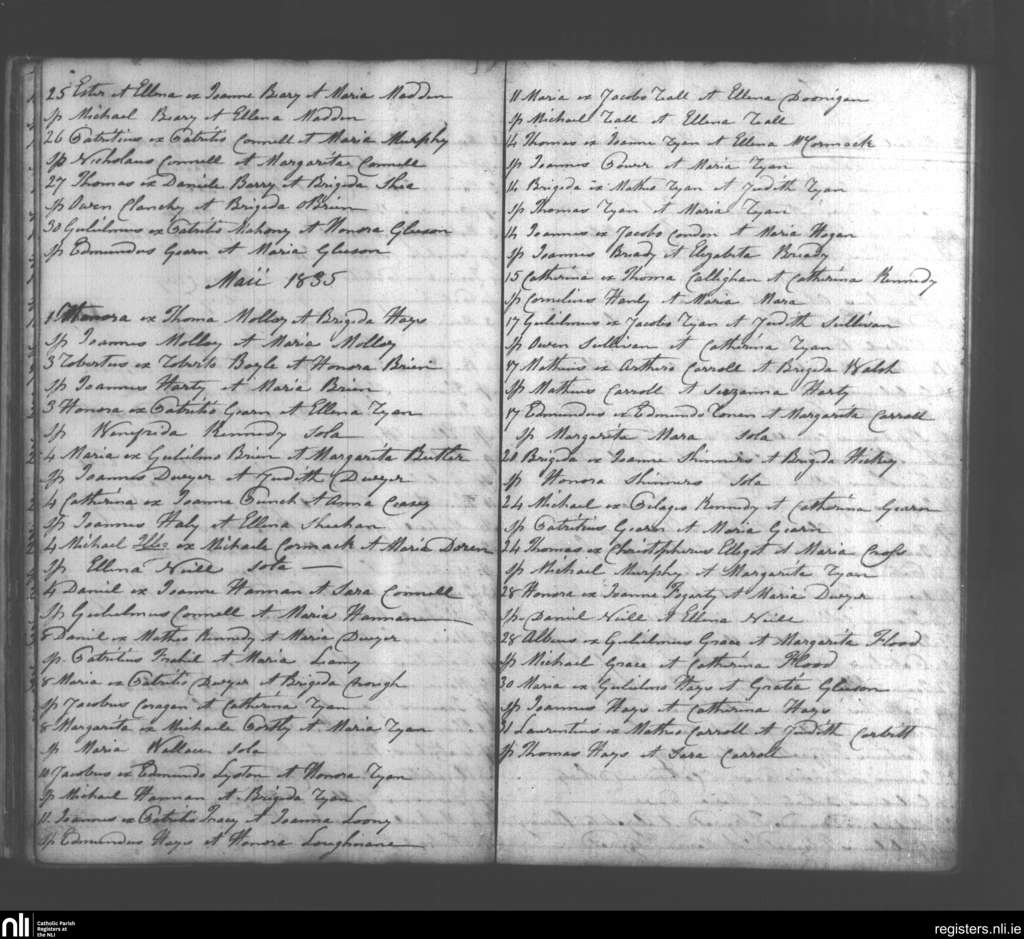 25 Ester et Ellena ex Joanne Beary et Maria Madden
sp Michael Beary et Ellena Madden
26 Patritius ex Patritio Connell et Maria Murphy
sp Nicholaus Connell et Margarita Connell
27 Thomas ex Daniele Barry et Brigida Shea
sp Owen Clanchy et Brigida OBrien
30 Gulielmus ex Patritio Mahony et Honora Gleason
sp Edmundus Gearn et Maria Gleason
Maii 1835
1 Honora ex Thoma Molloy et Brigida Hays
sp Joannes Molloy et Maria Molloy
3 Robertus ex Roberto Boyle et Honora Brien
sp Joannes Harty et Maria Brien
3 Honora ex Patritio Gearn et Ellena Ryan
sp Winefrida Kennedy sola
4 Maria ex Gulielmo Brien et Margarita Butler
sp Joannes Dwyer et Judith Dwyer
4 Catharina ex Joanne Punch et Anna Casey
sp Joannes Haly et Ellena Sheehan
4 Michael Ille: ex Michaele Cormack et Maria Doren
sp Ellena Neill sola
4 Daniel ex Joanne Hannan et Sara Connell
sp Gulielmus Connell et Maria Hannan
8 Daniel ex Matheo Kennedy et Maria Dwyer
sp Patritius Frahil et Maria Leamy
8 Maria ex Patritio Dwyer et Brigida Crough
sp Jacobus Coragan et Catharina Ryan
8 Margarita ex Michaele Costly et Maria Ryan
sp Maria Wallace sola
10 Jacobus ex Edmundo Lyston et Honora Ryan
sp Michael Hannan et Brigida Ryan
11 Joannes ex Patritio Tracy et Joanna Loony
sp Edmundus Hays et Honora Loughnane
11 Maria ex Jacobo Lall et Ellena Doonigan
sp Michael Lall et Ellena Lall
14 Thomas ex Joanne Ryan et Ellena McCormack
sp Joannes Power et Maria Ryan
14 Brigida ex Matheo Ryan et Judith Ryan
sp Thomas Ryan et Maria Ryan
14 Joannes ex Jacobo Condon et Maria Hogan
sp Joannes Briady et Elizabeta Briady
15 Catharina ex Thoma Callighan et Catharina Kennedy
sp Cornelius Hanly et Maria Mara
17 Gulielmus ex Jacobo Ryan et Judith Sullivan
sp Owen Sullivan et Catharina Ryan
17 Matheus ex Arthuro Carroll et Brigida Walsh
sp Matheus Carroll et Suzanna Harty
17 Edmundus ex Edmundo Conen et Margarita Carroll
sp Margarita Mara sola
20 Brigida ex Joanne Shinners et Brigida Hickey
sp Honora Shinners sola
24 Michael ex Pelagio Kennedy et Catharina Gearn
sp Patritius Gearn et Maria Gearn
24 Thomas ex Christopherus Elligot et Maria Cross
sp Michael Murphy et Margarita Ryan
28 Honora ex Joanne Fogarty et Maria Dwyer
sp Daniel Neill et Ellena Neill
28 Albeus ex Gulielmus Grace et Margarita Flood
sp Michael Grace et Catharina Flood
30 Maria ex Gulielmo Hays et Gratia Gleeson
sp Joannes Hays et Catharina Hays
31 Laurentius ex Matheo Carroll et Judith Corbett
sp Thomas Hays et Sara Carroll
nli
Catholic Parish
Registers at
the NLI
registers.nli.ie